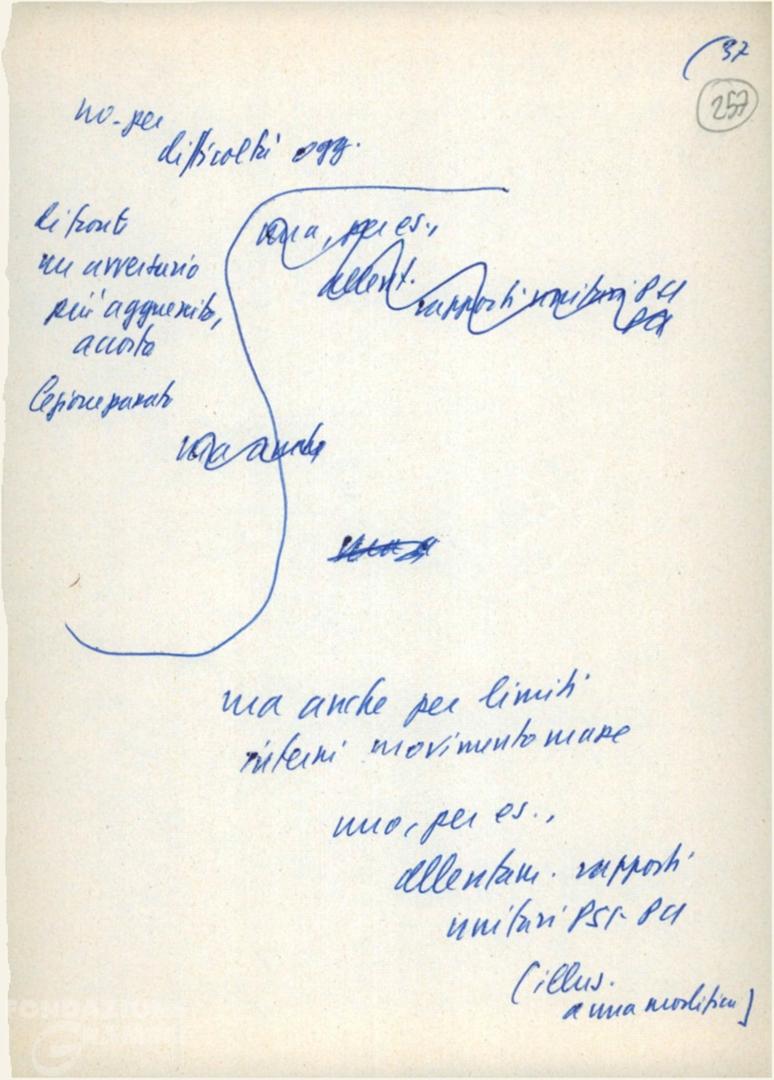 (37
257
no-per
difficoltà ogg.
di fronte
un avversario
più agguerrito,
accorto
una, per es.,
allent.
rapporti unitari PSI
PCI
ma anche
ma anche per limiti
interni movimento masse
uno, per es.,
allentam. rapporti
unitari PSI-PCI
(illus.
FONDAZIONE